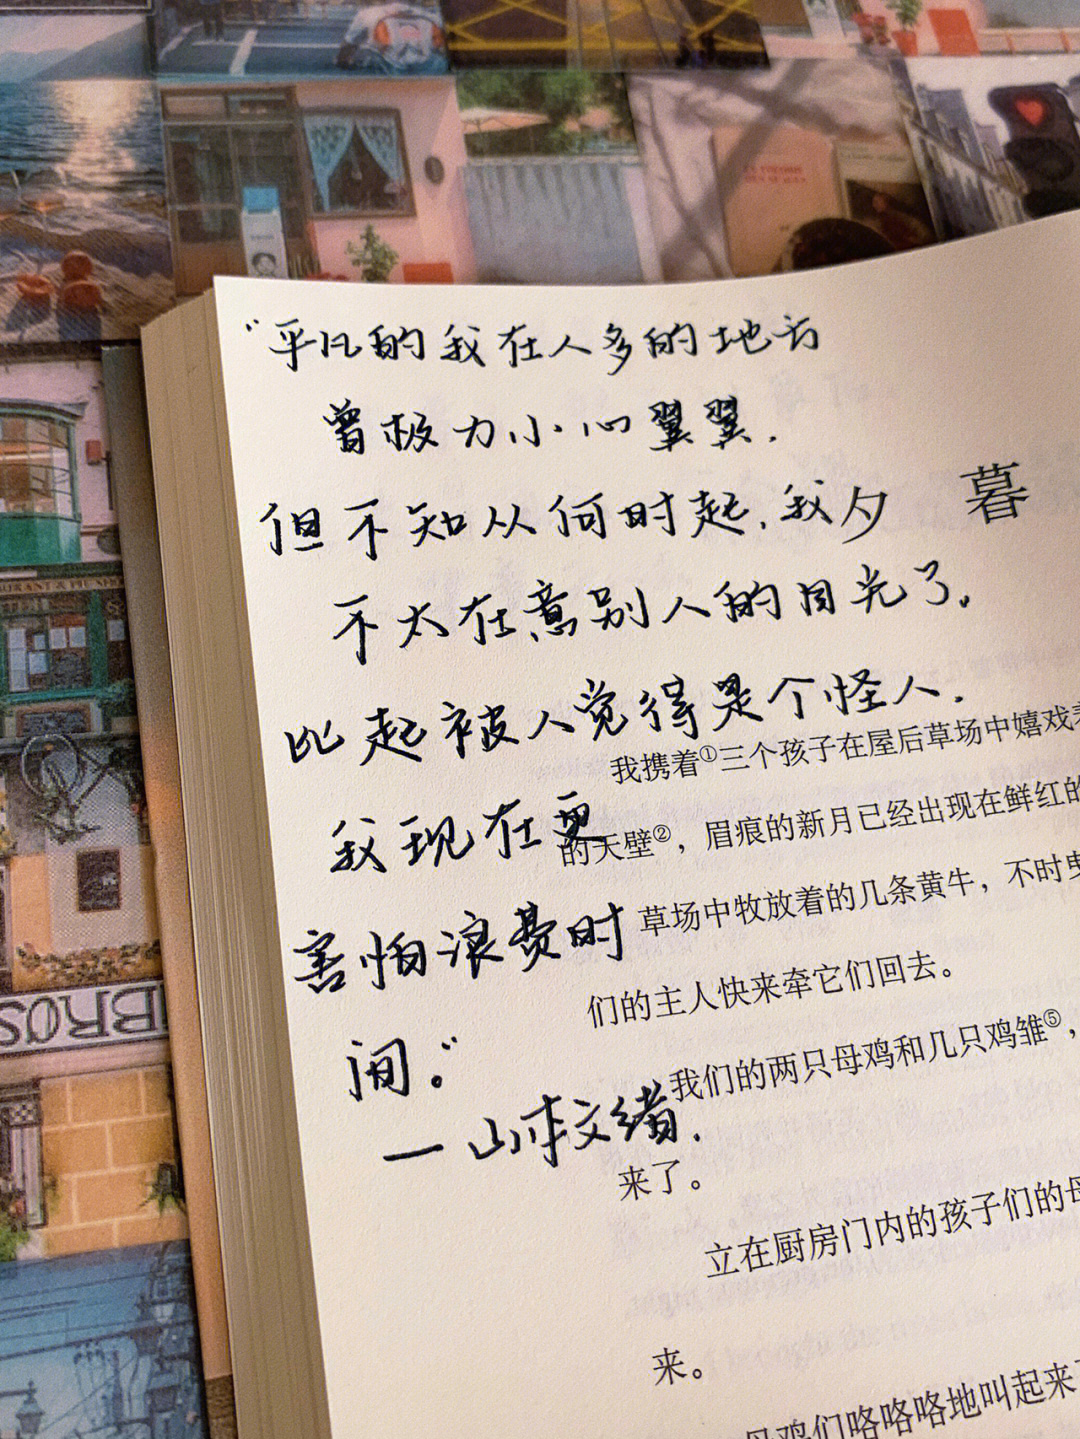 “平凡的我在人多的地方
曾极力小心翼翼.
但不知从何时起,我
夕暮
不太在意别人的目光了。
比起被人觉得是个怪人.
我携着①三个孩子在屋后草场中嬉戏着
我现在更
的天壁②，眉痕的新月已经出现在鲜红的
害怕浪费时
草场中牧放着的几条黄牛，不时曳
们的主人快来牵它们回去。
间。”
我们的两只母鸡和几只鸡雏⑤，
—山本文绪.
来了。
立在厨房门内的孩子们的母
来。
母鸡们咯咯咯地叫起来了
URANT & PIE SHO
IBROS